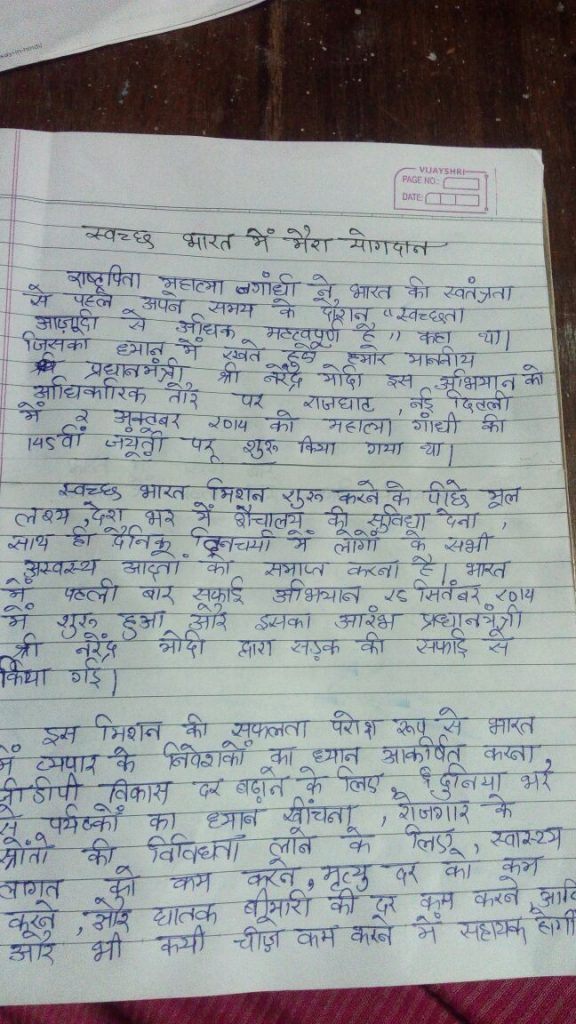 VIJAYSHRI
PAGE NO.:
DATE:
स्वच्छ भारत में मेरा योगदान
राष्ट्रपिता महात्मा गांधी ने भारत की स्वतंत्रता
से पहले अपने समय के दौरान "स्वच्छता
आज़ादी से अधिक महत्वपूर्ण है" कहा था।
जिसका ध्यान में रखते हुये हमारे माननीय
प्रधानमंत्री श्री नरेंद्र मोदी इस अभियान को
आधिकारिक तौर पर राजघाट, नई दिल्ली
में २ अक्टूबर २०१४ को महात्मा गांधी की
145वीं जयंती पर शुरू किया गया था।
स्वच्छ भारत मिशन शुरू करने के पीछे मूल
लक्ष्य, देश भर में शौचालय की सुविधा देना,
साथ ही दैनिक दिनचर्या में लोगों के सभी
अस्वस्थ आदतों को समाप्त करना है। भारत
में पहली बार सफाई अभियान २५ सितंबर २०१४
में शुरू हुआ और इसका आरंभ प्रधानमंत्री
श्री नरेंद्र मोदी द्वारा सड़क की सफाई से
किया गई।
इस मिशन की सफलता परोक्ष रूप से भारत
में व्यपार के निवेशकों का ध्यान आकर्षित करना,
जीडीपी विकास दर बढ़ाने के लिए, दुनिया भर
से पर्यटकों का ध्यान खींचना, रोजगार के
स्रोतों की विविधता लाने के लिए, स्वास्थ्य
लागत को कम करने, मृत्यु दर को कम
करने, और घातक बीमारी की दर कम करने आदि
और भी कयी चीज़े कम करने में सहायक होगी